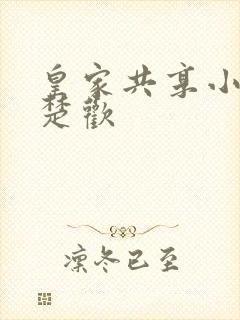 皇家共享小
楚歡
凛冬已至